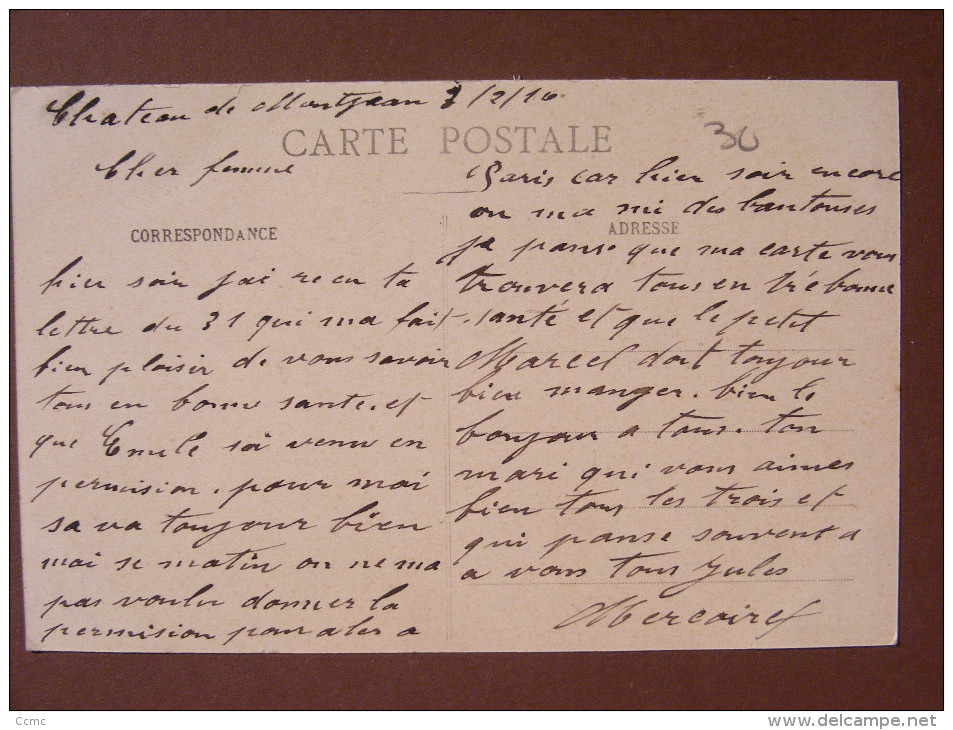 Chateau de Montjean 3/2/16
CARTE POSTALE
30
Cher femme
CORRESPONDANCE
hier soir jai recu ta
lettre du 31 qui ma fait
bien plaisir de vous savoir
tous en bonne sante. et
que Emile soi venu en
permision. pour moi
sa va toujour bien
mai se matin on ne ma
pas voulu donner la
permision pour aler a
Paris car hier soir encore
on ma mi des
ADRESSE
je panse que ma carte vous
trouvera tous en tré bonne
santé et que le petit
Marcel doit toujour
bien manger. bien le
bonjour a tous. ton
mari qui vous aimes
bien tous les trois et
qui panse souvent a
a vous tous Jules
Ccmc
www.delcampe.net